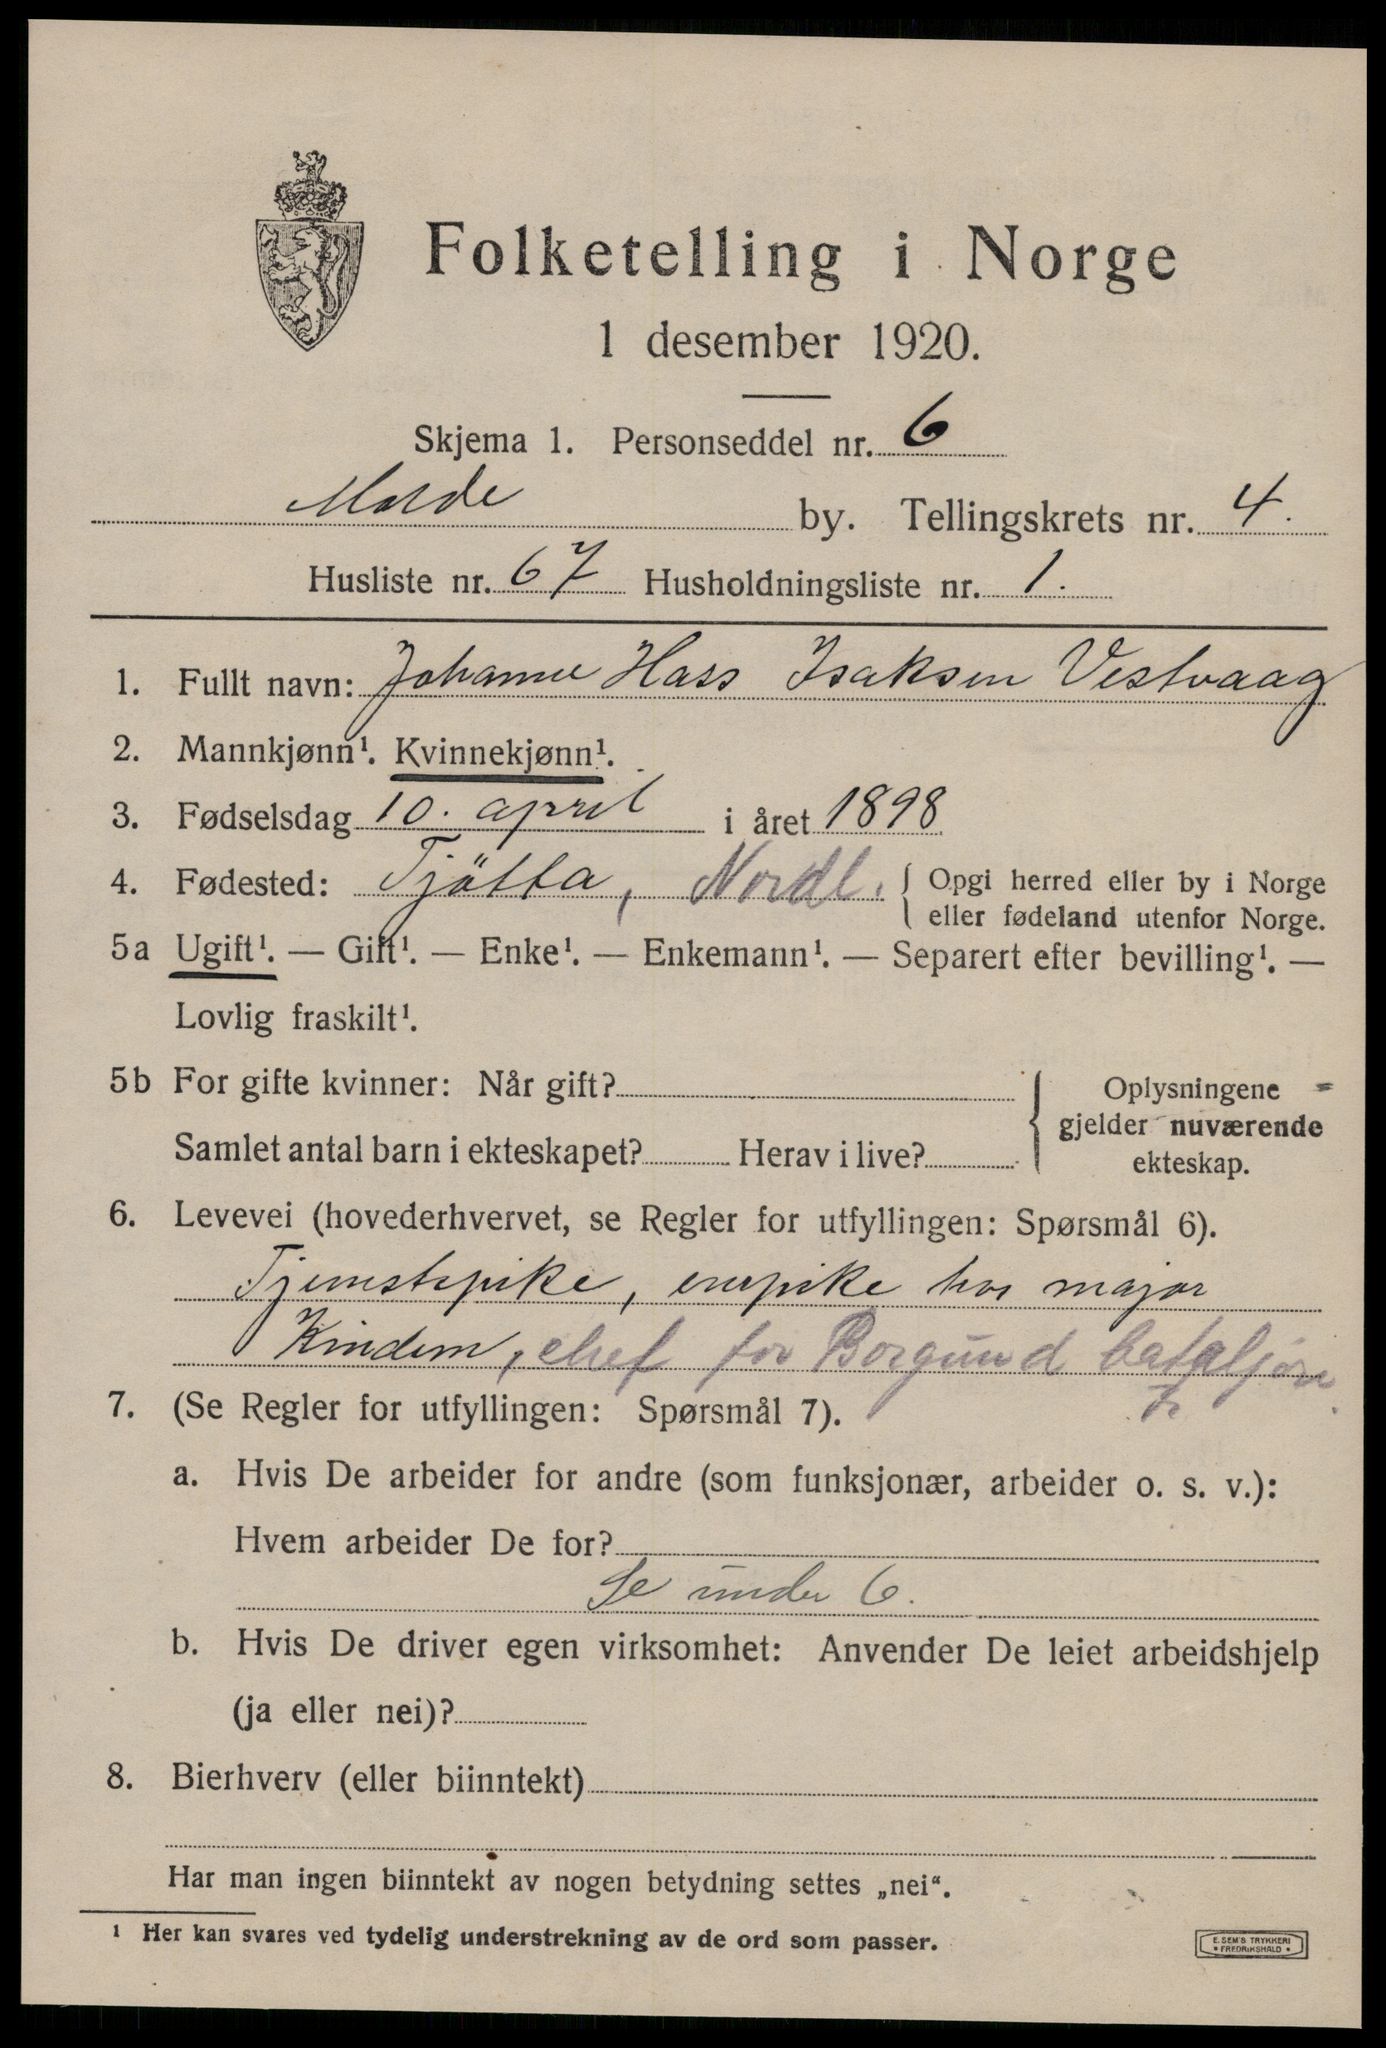 Folketelling i Norge
1 desember 1920.
Skjema 1. Personseddel nr. 6
Molde by. Tellingskrets nr. 4.
Husliste nr. 67 Husholdningsliste nr. 1.
1. Fullt navn: Johanne Hass Isaksen Vestvaag
2. Mannkjønn¹. Kvinnekjønn¹.
3. Fødselsdag 10. april i året 1898
4. Fødested: Tjøtta, Nordl. { Opgi herred eller by i Norge
eller fødeland utenfor Norge.
5a Ugift¹. — Gift¹. — Enke¹. — Enkemann¹. — Separert efter bevilling¹. —
Lovlig fraskilt¹.
5b For gifte kvinner: Når gift?
Samlet antal barn i ekteskapet? Herav i live?
Oplysningene
gjelder nuværende
ekteskap.
6. Levevei (hovederhvervet, se Regler for utfyllingen: Spørsmål 6).
Tjenestepike, enepike hos major
Kindem, chef for Borgund bataljon
7. (Se Regler for utfyllingen: Spørsmål 7).
a. Hvis De arbeider for andre (som funksjonær, arbeider o. s. v.):
Hvem arbeider De for?
Se under 6.
b. Hvis De driver egen virksomhet: Anvender De leiet arbeidshjelp
(ja eller nei)?
8. Bierhverv (eller biinntekt)
Har man ingen biinntekt av nogen betydning settes „nei“.
¹ Her kan svares ved tydelig understrekning av de ord som passer.
E. SEM'S TRYKKERI
FREDRIKSHALD